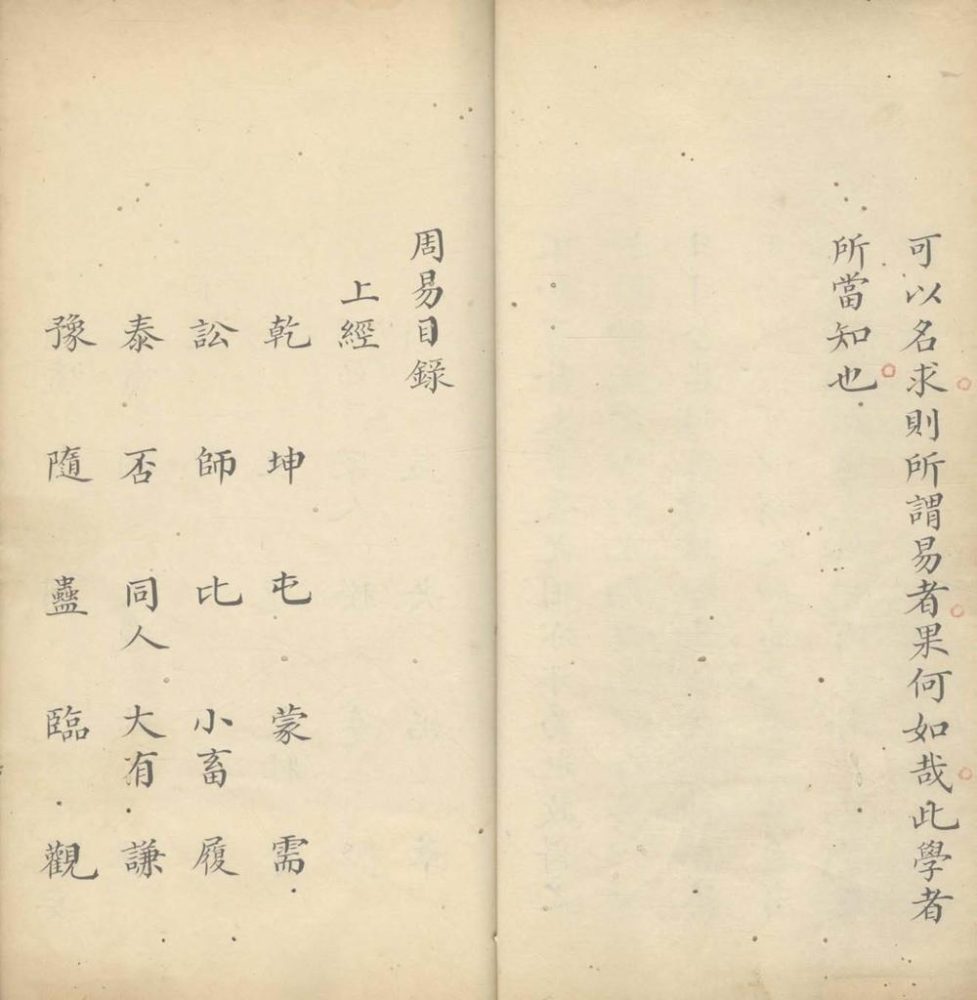 可以名求則所謂易者果何如哉此學者
所當知也
周易目錄
上經
乾 坤 屯 蒙 需
訟 師 比 小畜 履
泰 否 同人 大有 謙
豫 隨 蠱 臨 觀